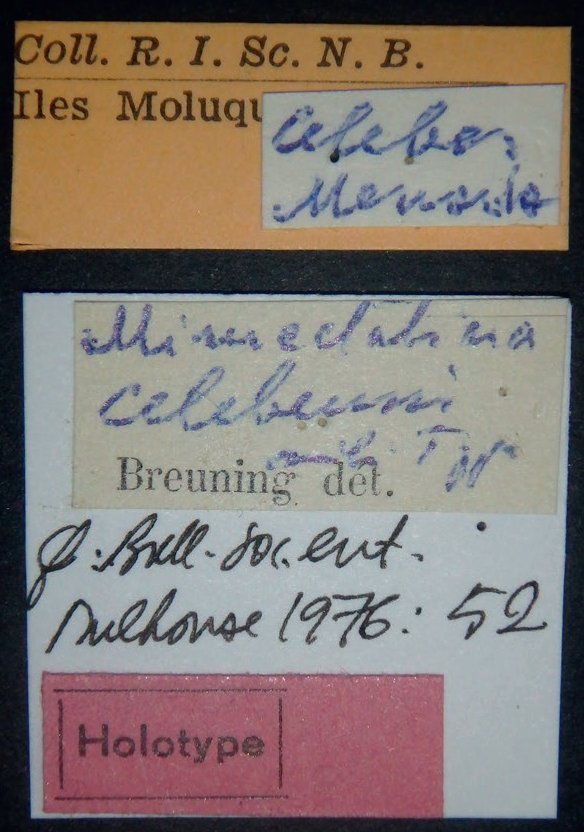 Coll. R. I. Sc. N. B.
Iles Moluqu
Celebes,
Menado
Mimectatina
celebensis
mihi Typ
Breuning det.
cf. Bull. Soc. ent.
Mulhouse 1976: 52
Holotype